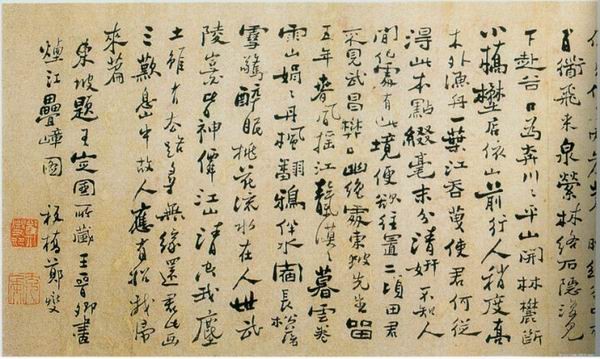 百衜飛来泉縈林絡石隱復見
下赴谷口為奔川〻平山開林麓斷
小橋壄店依山前行人稍度喬
木外漁舟一葉江吞天使君何從
得此本點綴毫末分清妍不知人
間何處有此境便欲往置二頃田君
不見武昌樊口幽絕處東坡先生留
五年春風搖江天漠〻暮雲卷
雨山娟〻丹楓翻鴉伴水宿長松落
雪驚醉眠桃花流水在人世武
陵豈皆神僊江山清空我塵
土雖有去路尋無緣還君此畫
三歎息山中故人應有招我歸
来篇
東坡題王定國所藏王晉卿畫
煙江疊嶂圖 板橋鄭燮